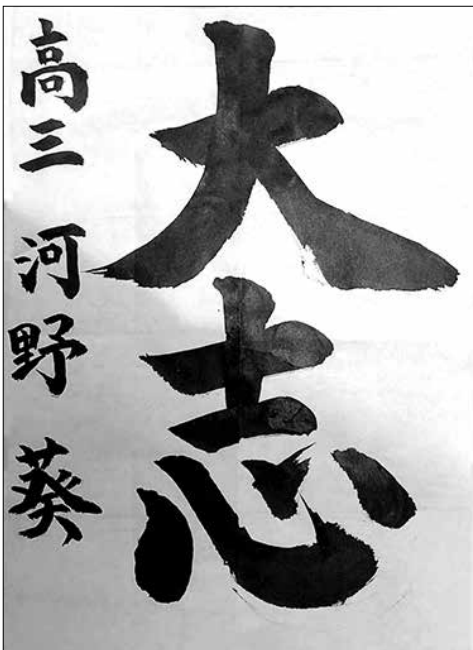 大志
高三 河野 葵